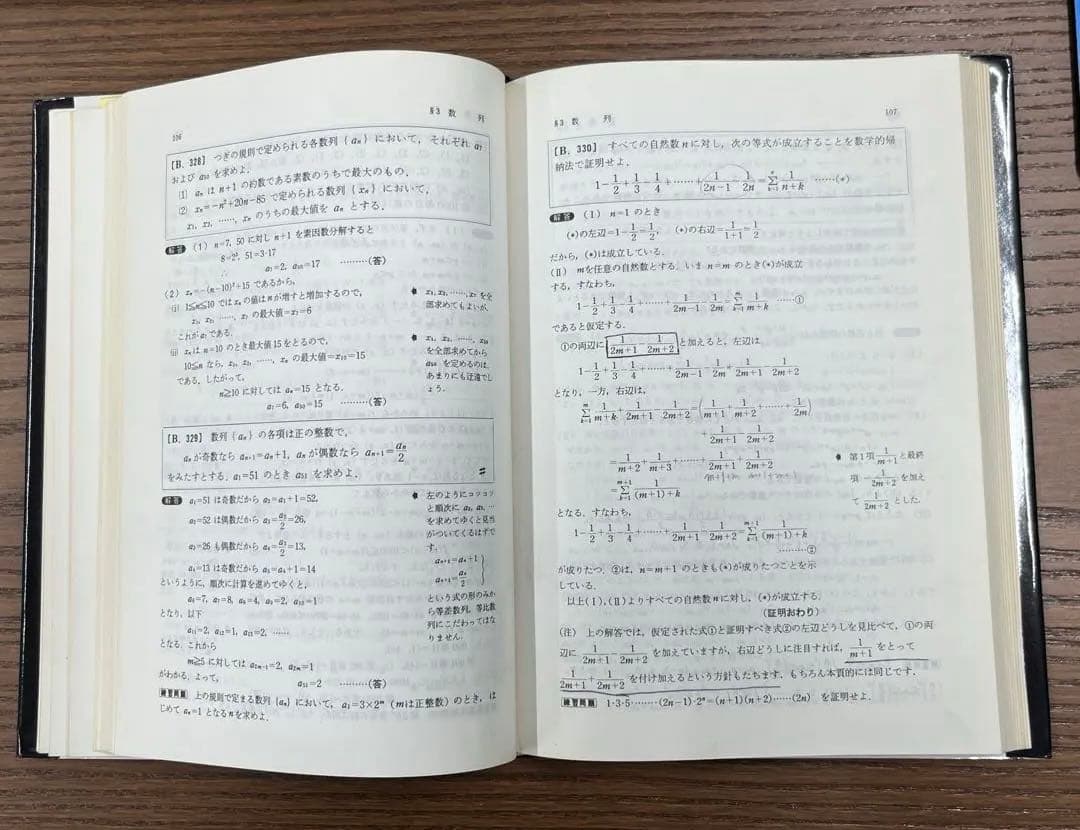 106
§3 数列
[B. 328] つぎの規則で定められる各数列 {aₙ} において, それぞれ a₇
および a₅₀ を求めよ.
(1) aₙ は n+1 の約数である素数のうちで最大のもの.
(2) xₙ=-n²+20n-85 で定められる数列 {xₙ} において,
x₁, x₂, ……, xₙ のうちの最大値を aₙ とする.
解答 (1) n=7, 50 に対し n+1 を素因数分解すると
8=2³, 51=3·17
∴ a₇=2, a₅₀=17 ………(答)
(2) xₙ=-(n-10)²+15 であるから,
(i) 1≦n≦10 では xₙ の値は n が増すと増加するので,
x₁, x₂, ……, x₇ の最大値=x₇=6
これが a₇ である.
(ii) xₙ は n=10 のとき最大値 15 をとるので,
10≦n なら, x₁, x₂, ……, xₙ の最大値=x₁₀=15
である. したがって,
n≧10 に対しては aₙ=15 となる.
a₇=6, a₅₀=15 ………(答)
x₁, x₂, ……, x₇ を全
部求めてもよいが,
x₁, x₂, ……, x₅₀
を全部求めてから
a₅₀ を定めるのは,
あまりにも迂遠でし
ょう.
[B. 329] 数列 {aₙ} の各項は正の整数で,
aₙ が奇数なら aₙ₊₁=aₙ+1, aₙ が偶数なら aₙ₊₁=aₙ/2
をみたすとする. a₁=51 のとき a₅₁ を求めよ.
解答 a₁=51 は奇数だから a₂=a₁+1=52,
a₂=52 は偶数だから a₃=a₂/2=26,
a₃=26 も偶数だから a₄=a₃/2=13,
a₄=13 は奇数だから a₅=a₄+1=14
というように, 順次に計算を進めてゆくと,
a₆=7, a₇=8, a₈=4, a₉=2, a₁₀=1
となり, 以下
a₁₁=2, a₁₂=1, a₁₃=2, ……
となる. これから
m≧5 に対しては a₂ₘ₋₁=2, a₂ₘ=1
がわかる. よって,
a₅₁=2 ………(答)
左のようにコツコツ
と順次に a₂, a₃, …
を求めてゆくと見当
がついてくるはずで
す.
aₙ₊₁=aₙ+1
aₙ₊₁=aₙ/2
という式の形のみか
ら等差数列, 等比数
列にこだわってはな
りません.
練習問題 上の規則で定まる数列 {aₙ} において, a₁=3×2ᵐ (m は正整数) のとき, は
じめて aₙ=1 となる n を求めよ.
§3 数列
107
[B. 330] すべての自然数 n に対し, 次の等式が成立することを数学的帰
納法で証明せよ.
1-1/2+1/3-1/4+……+1/(2n-1)-1/2n=Σ[k=1→n] 1/(n+k) ……(*)
解答 (I) n=1 のとき
(*)の左辺=1-1/2=1/2, (*)の右辺=1/(1+1)=1/2
だから, (*)は成立している.
(II) m を任意の自然数とする. いま n=m のとき(*)が成立
する, すなわち,
1-1/2+1/3-1/4+……+1/(2m-1)-1/2m=Σ[k=1→m] 1/(m+k) ……①
であると仮定する.
①の両辺に 1/(2m+1)-1/(2m+2) と加えると, 左辺は
1-1/2+1/3-1/4+……+1/(2m-1)-1/2m+1/(2m+1)-1/(2m+2)
となり, 一方, 右辺は,
Σ[k=1→m] 1/(m+k)+1/(2m+1)-1/(2m+2)=(1/(m+1)+1/(m+2)+……+1/2m)
+1/(2m+1)-1/(2m+2)
=1/(m+2)+1/(m+3)+……+1/(2m+1)+1/(2m+2)
=Σ[k=1→m+1] 1/((m+1)+k)
第1項 1/(m+1) と最終
項 -1/(2m+2) を加え
て 1/(2m+2) とした.
となる. すなわち,
1-1/2+1/3-1/4+……+1/(2m+1)-1/(2m+2)=Σ[k=1→m+1] 1/((m+1)+k)
………②
が成りたつ. ②は, n=m+1 のときも(*)が成りたつことを示
している.
以上(I), (II)よりすべての自然数 n に対し, (*)が成立する.
(証明おわり)
(注) 上の解答では, 仮定された式①と証明すべき式②の左辺どうしを見比べて, ①の両
辺に 1/(2m+1)-1/(2m+2) を加えていますが, 右辺どうしに注目すれば, 1/(m+1) をとって
1/(2m+1)+1/(2m+2) を付け加えるという方針もたちます. もちろん本質的には同じです.
練習問題 1·3·5·……·(2n-1)·2ⁿ=(n+1)(n+2)……(2n) を証明せよ.